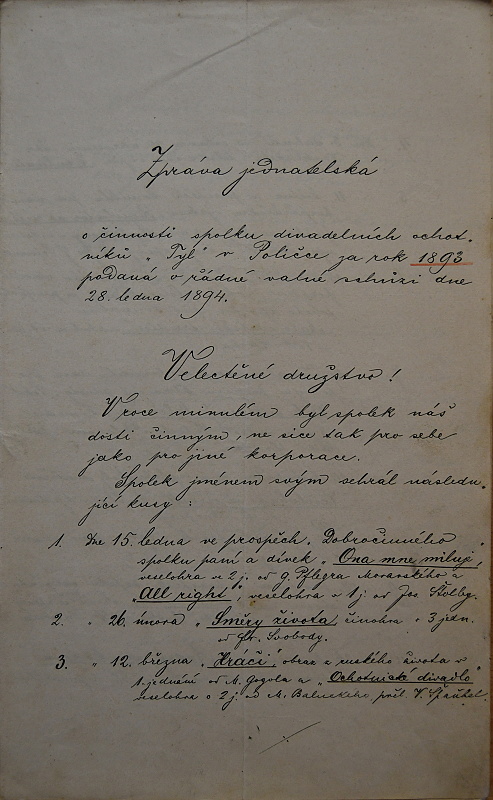 Zpráva jednatelská
o činnosti spolku divadelních ochot-
níků „Tyl" v Poličce za rok 1893
podaná v řádné valné schůzi dne
28. ledna 1894.
Velectěné družstvo!
V roce minulém byl spolek náš
dosti činným, ne sice tak pro sebe
jako pro jiné korporace.
Spolek jménem svým sehrál následu-
jící kusy :
1. Dne 15. ledna ve prospěch. Dobročinného
spolku paní a dívek „Ona mne miluje"
veselohra v 2 j. od G. Pflegra Moravského a
„All right", veselohra v 1 j. od Jos. Štolby.
2. " 26. února „Směry života" činohra v 3 jedn.
od Fr. Svobody.
3. " 12. března „Hráči", obraz z ruského života v
1. jednání od M. Gogola a „Ochotnické divadlo"
veselohra o 2 j. od M. Baluckého, přel. V. Špaček.